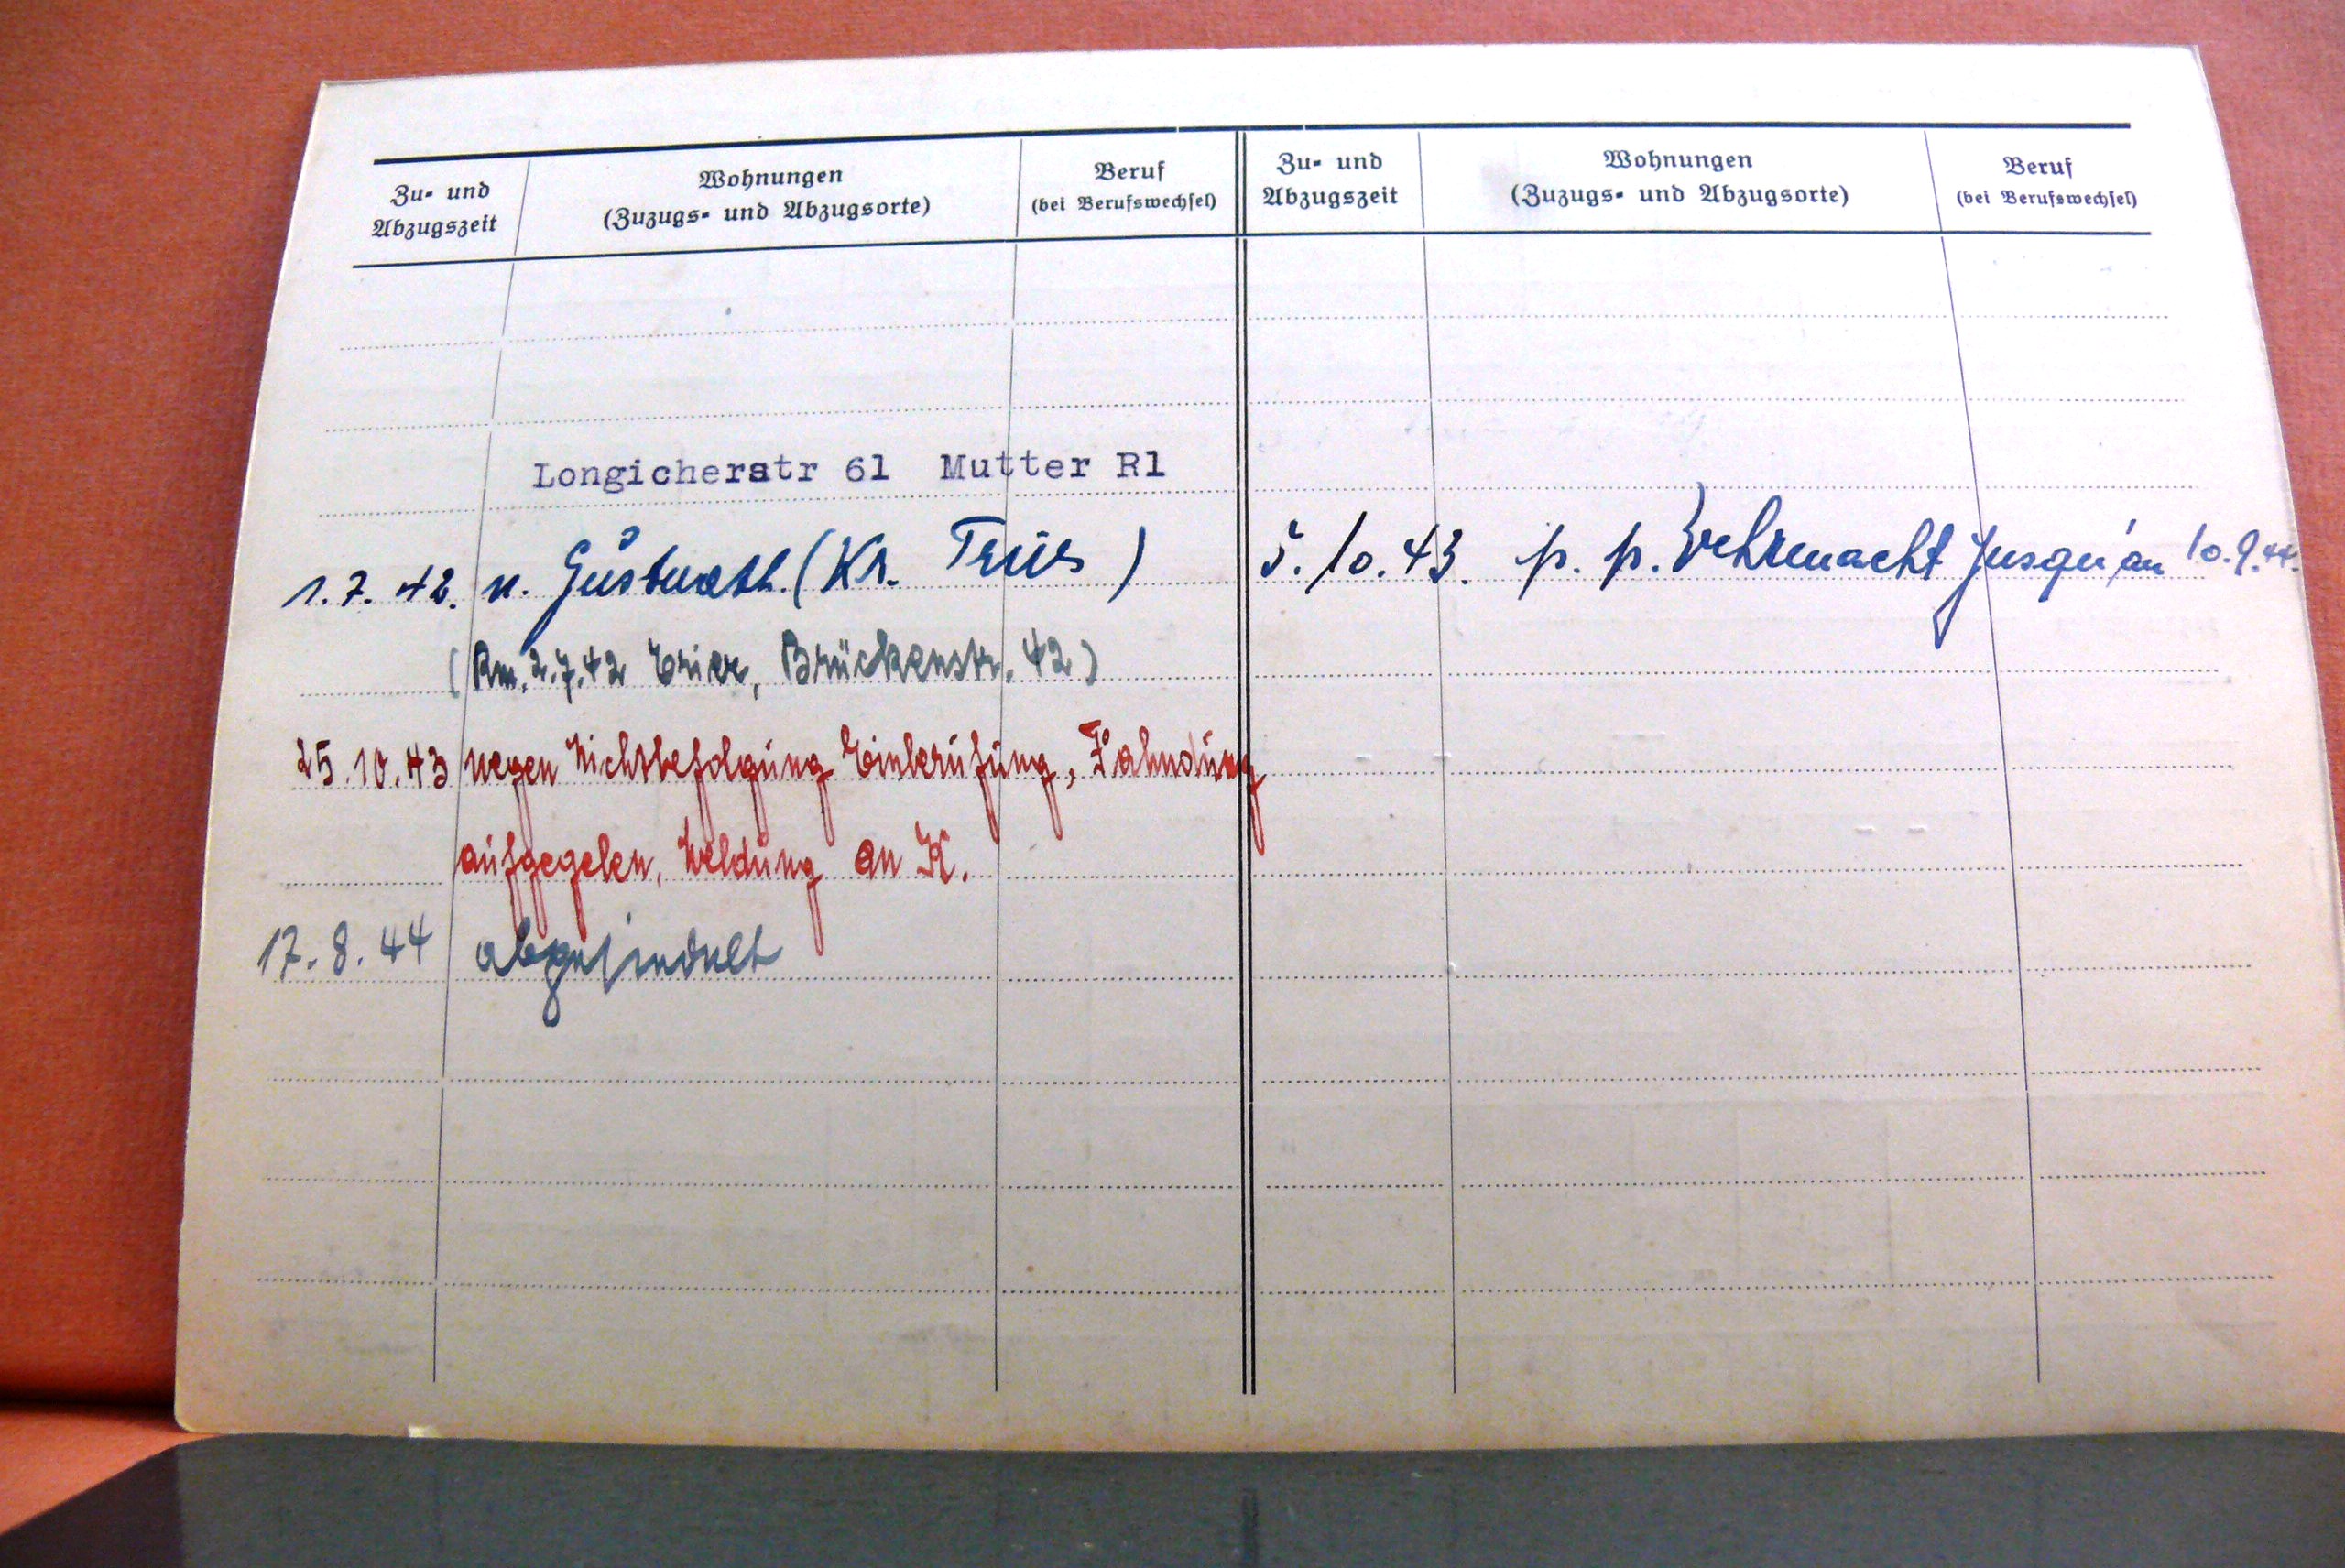 Zu- und
Abzugszeit
Wohnungen
(Zuzugs- und Abzugsorte)
Beruf
(bei Berufswechsel)
Zu- und
Abzugszeit
Wohnungen
(Zuzugs- und Abzugsorte)
Beruf
(bei Berufswechsel)
Longicherstr 61 Mutter R1
1.7.42. n. Gusterath (Kr. Trier)
(Rm. 2.7.42 Trier, Brückenstr. 42)
25.10.43 wegen Nichtbefolgung Einberufung, Fahndung
aufgegeben, Meldung an K.
17.8.44
5.10.43. p. p. Wehrmacht jusqu'au 10.9.44.